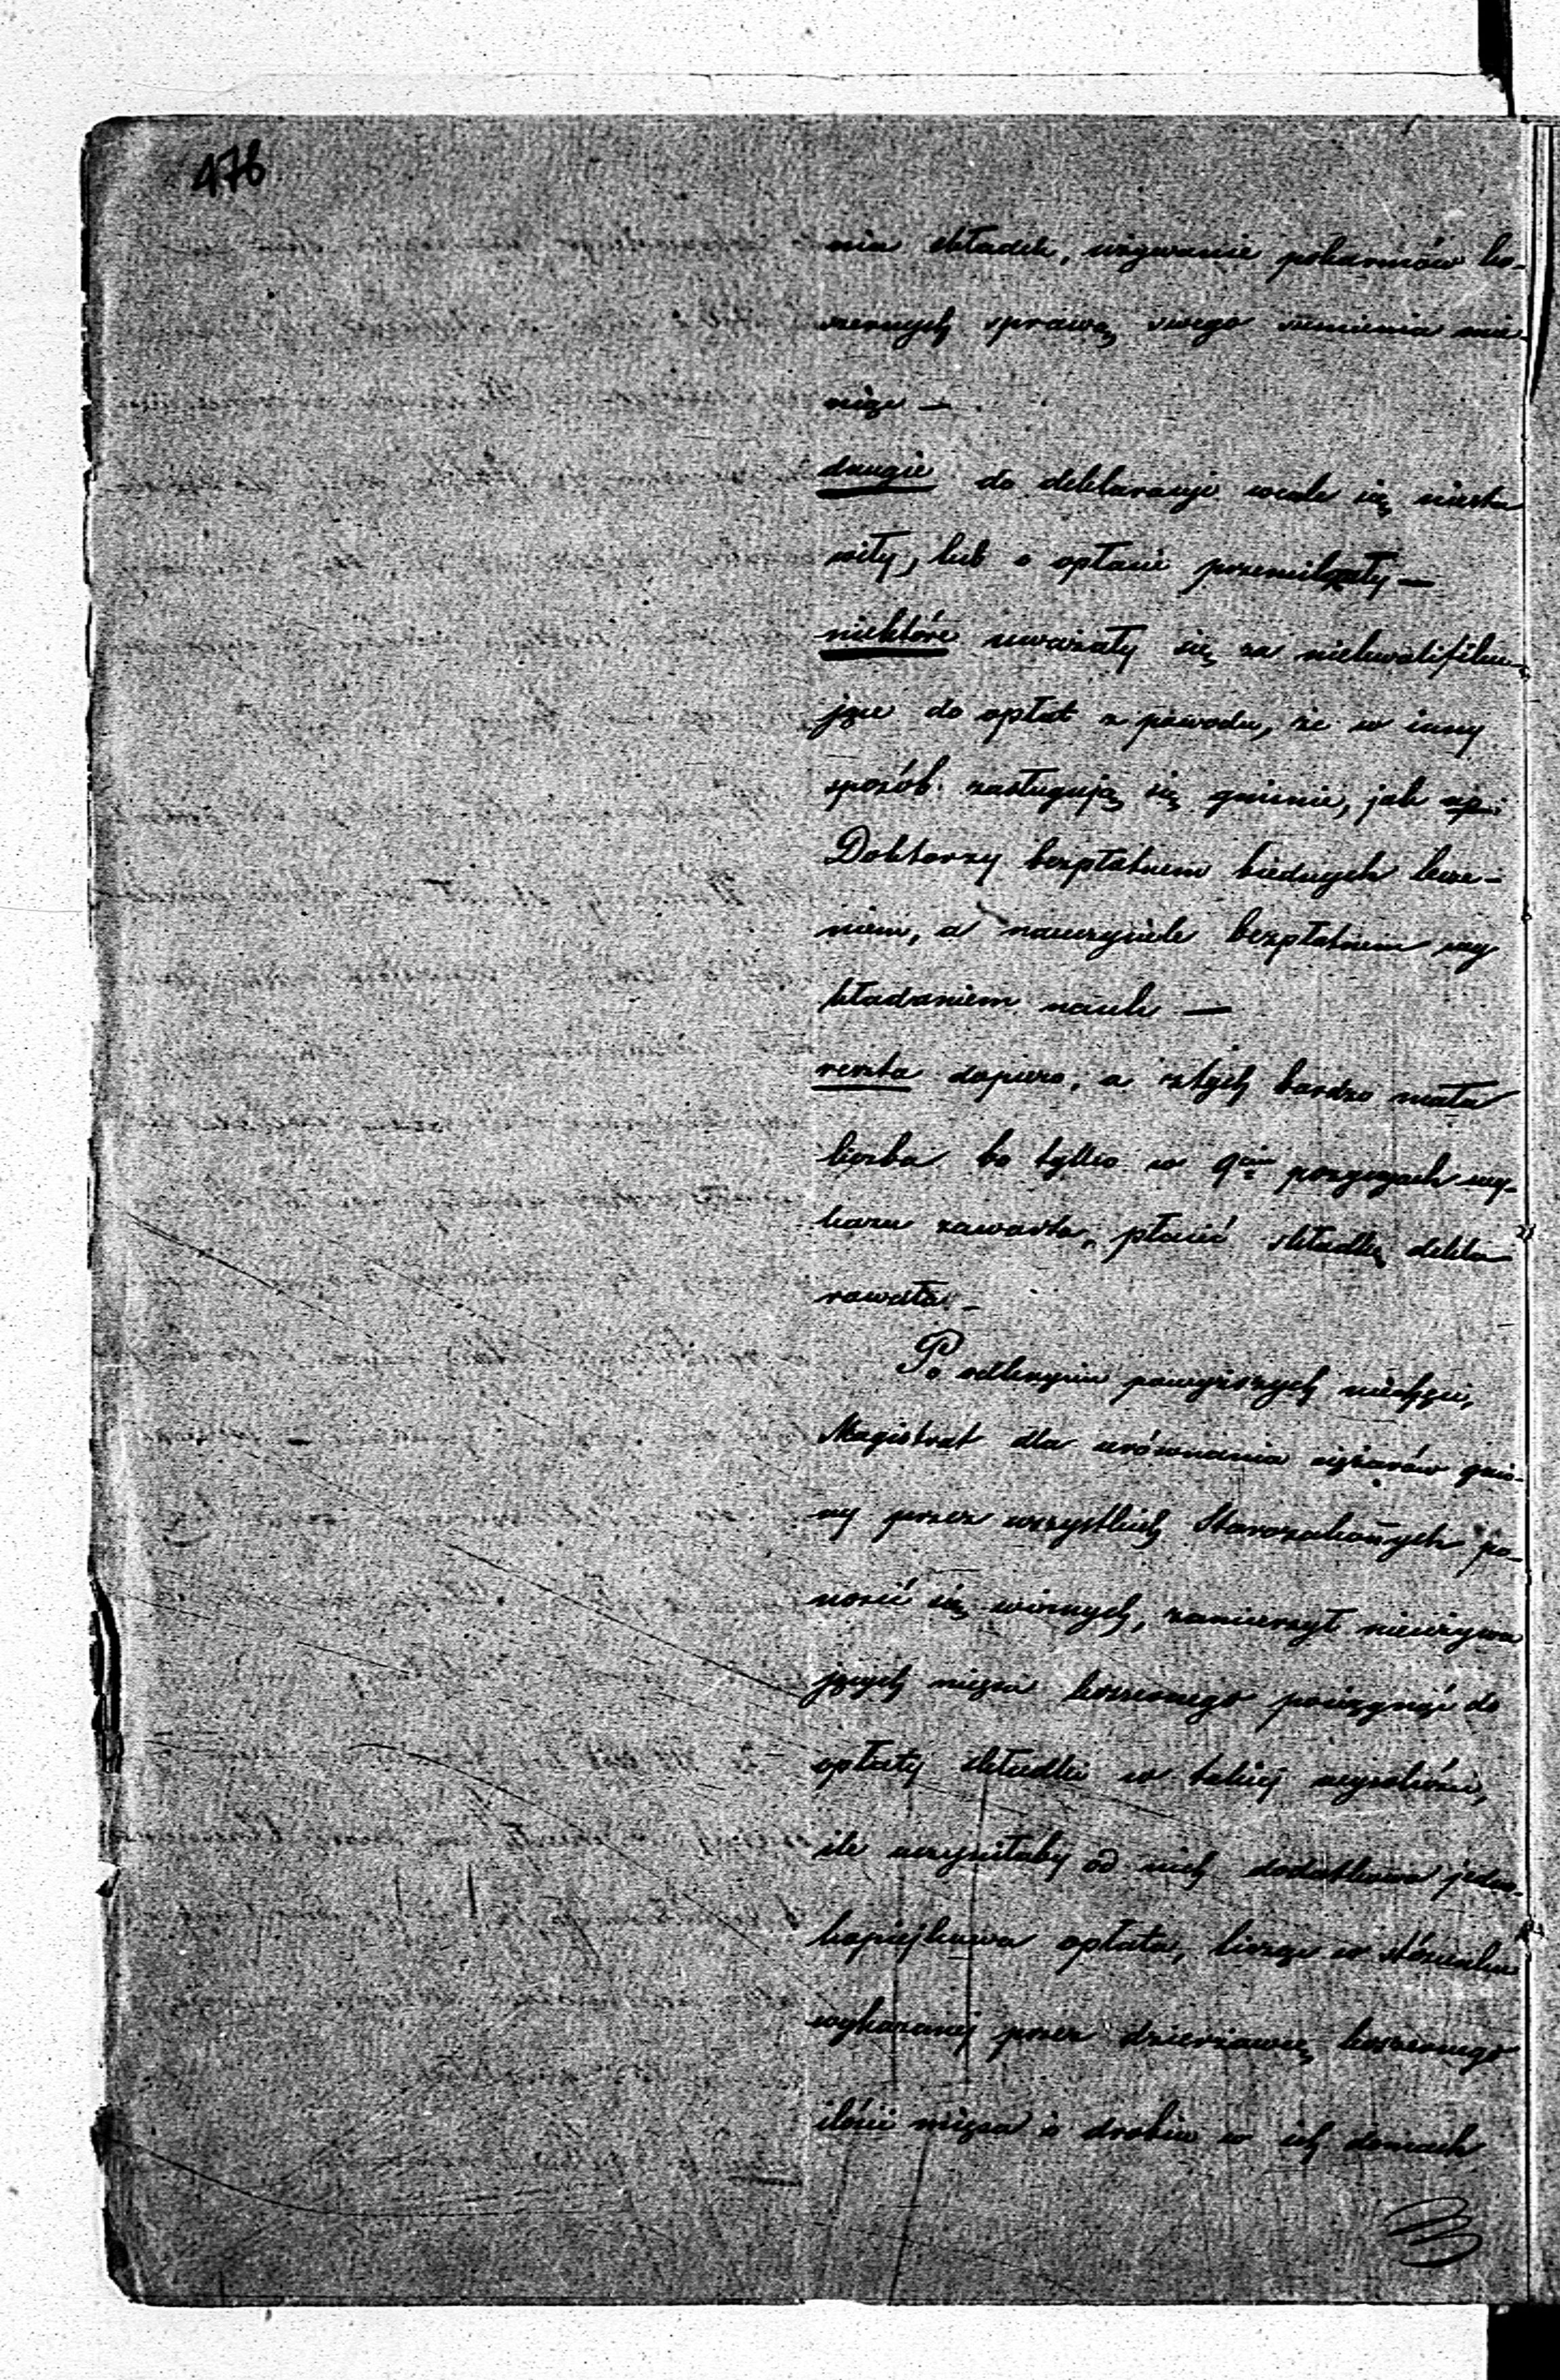 476
nia składek, używanie pokarmów ko-
szernych sprawą swego sumienia mie-
niąc —
drugie do deklaracyi wcale się niesta
wiły, lub o opłacie przemilczały —
niektóre uważały się za niekwalifiku-
jące do opłat z powodu, że w inny
sposób zasługują się gminie, jak np.
Doktorzy bezpłatnem biednych lecze-
niem, a nauczyciele bezpłatnem wy
kładaniem nauk —
reszta dopiero, a z tych bardzo mała
liczba bo tylko w 9ciu pozycyach wy-
kazu zawarta, płacić składkę dekla
rowała —
Po odkryciu powyższych niechęci,
Magistrat dla urównania ciężarów gmi-
ny przez wszystkich Starozakonnych po-
nosić się winnych, zamierzył nieużywa
jących mięsa koszernego pociągnąć do
opłaty składki w takiej wysokości,
ile uczyniłaby od nich dodatkowa jedno-
kopiejkowa opłata, licząc w stósunku
wykazanej przez dzierżawcę koszernego
ilości mięsa i drobiu w ich domach